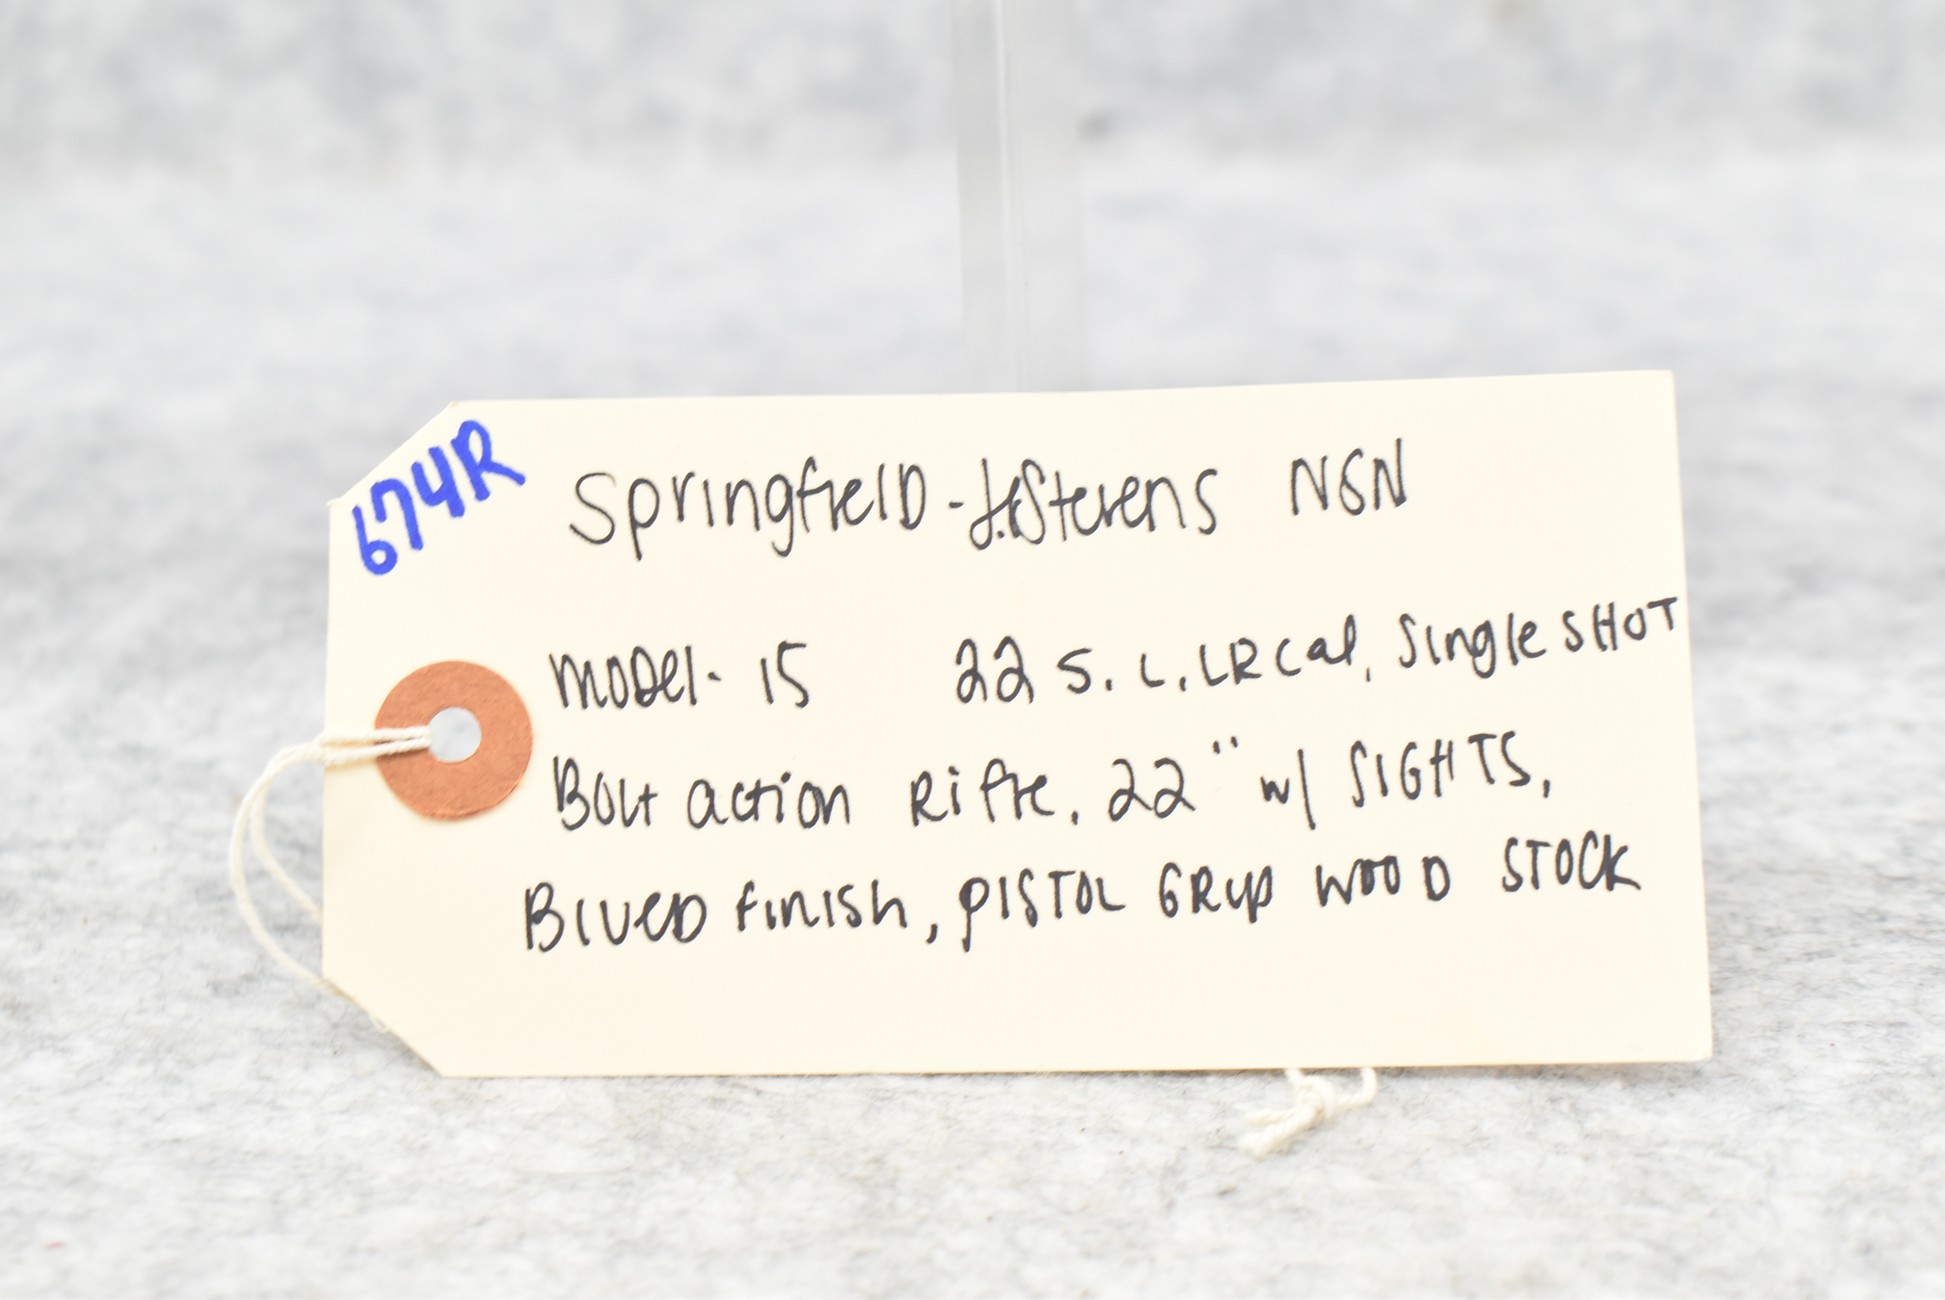 674R
Springfield - J. Stevens NSN
Model - 15 22 S. L. LR Cal, Single SHOT
Bolt action Rifle, 22" w/ SIGHTS,
Blued finish, PISTOL GRIP WOOD STOCK